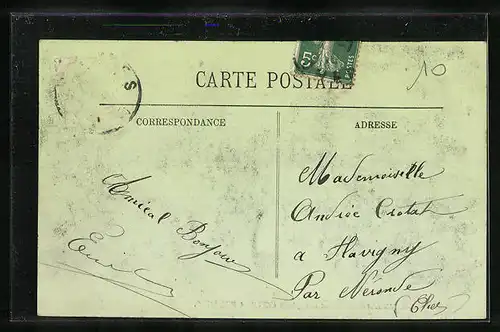 5c
10
CARTE POSTALE
S
CORRESPONDANCE
ADRESSE
Amical Bonjour
Mademoiselle
Andrée Crotat
a Flavigny
Par Nérondes
(Cher)